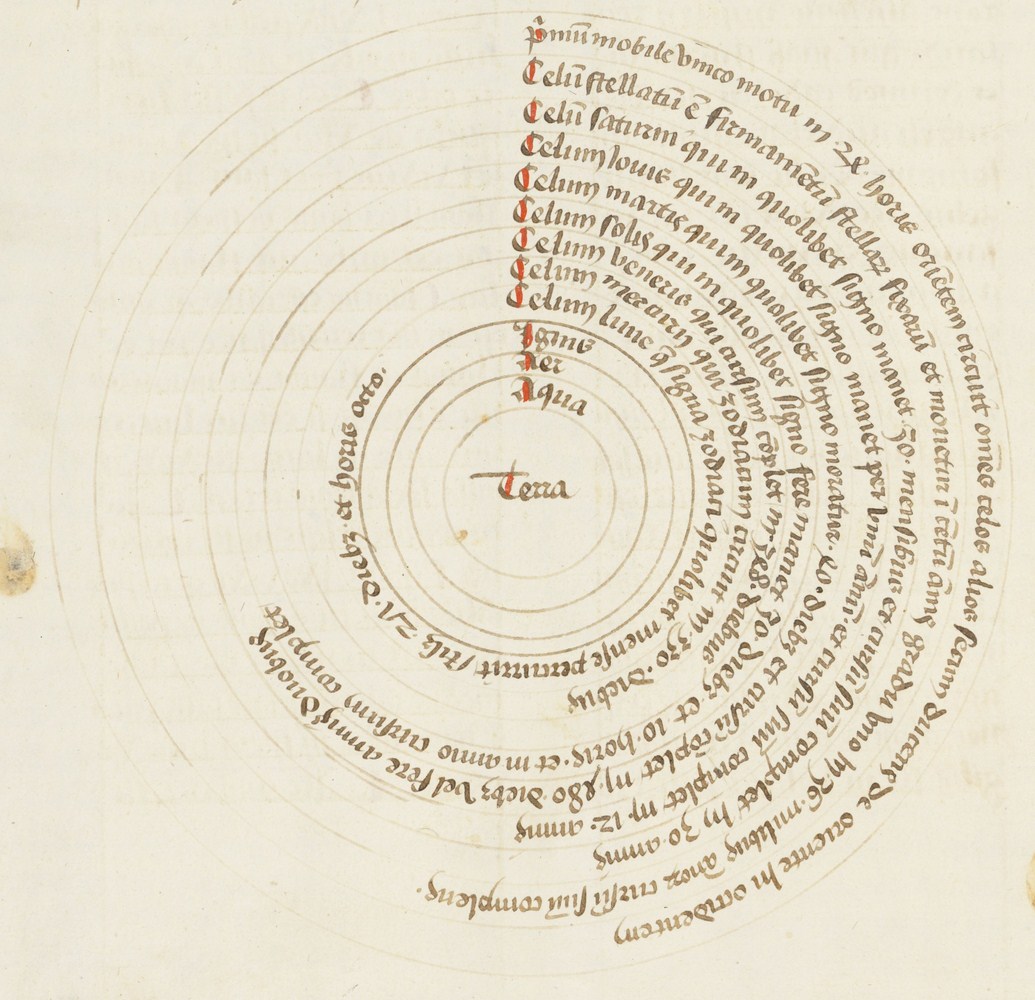 p̃mũ mobile vnico motu in 24 horis oriẽtem circuit om̃es celos alios secum ducens de oriente in occidentem
Celũ stellatũ ẽ firmamẽtũ stellaꝝ fixarũ et mouetur ĩ cẽtũ ãnis gradu vno in 36. milibus ãnoꝝ cursũ suũ complens.
Celũ saturni qui in quolibet signo manet 30. mensibus et cursũ suũ complet in 30. annis
Celum Iouis qui in quolibet signo manet per vnũ ãnũ et cursũ suũ complet in. 12. annis
Celum martis qui in quolibet signo moratur. 60. diebꝫ et cursũ cõplet in. 780 diebꝫ vel fere annis duobus
Celum solis qui in quolibet signo fere manet 30. diebꝫ. et 10. horis. et in anno cursum complet
Celum veneris qui cursum cõplet in 348 diebus
Celum mercurii qui zodiacum circuit in 330. diebus
Celum lune q̃ signa zodiaci quolibet mense percurrit sciłꝫ. 27. diebꝫ. et horis octo.
Ignis
Aer
Aqua
Terra